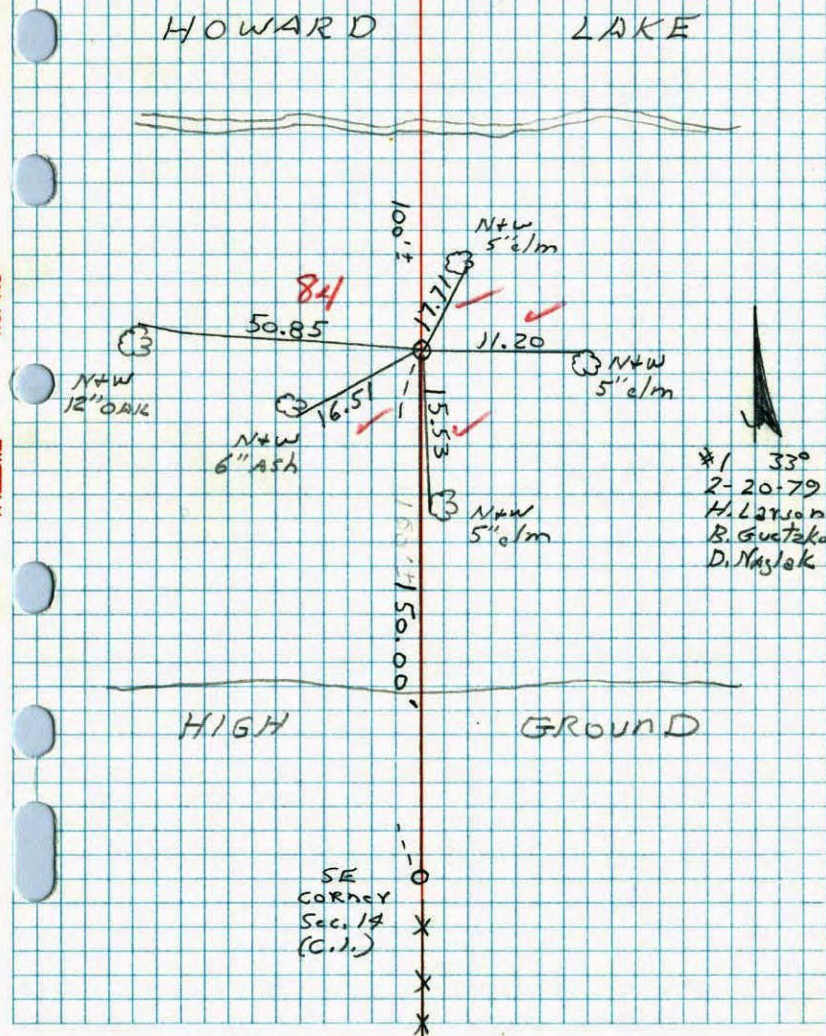 HOWARD LAKE
100'±
N+W
5" elm
17.71
84
50.85
11.20
N+W
12" OAK
N+W
5" elm
16.51
15.53
N+W
6" Ash
N+W
5" elm
#1 33°
2-20-79
H. Larson
B. Guetzko
D. Naglak
150.00'
HIGH GROUND
SE
CORNER
Sec. 14
(C.I.)